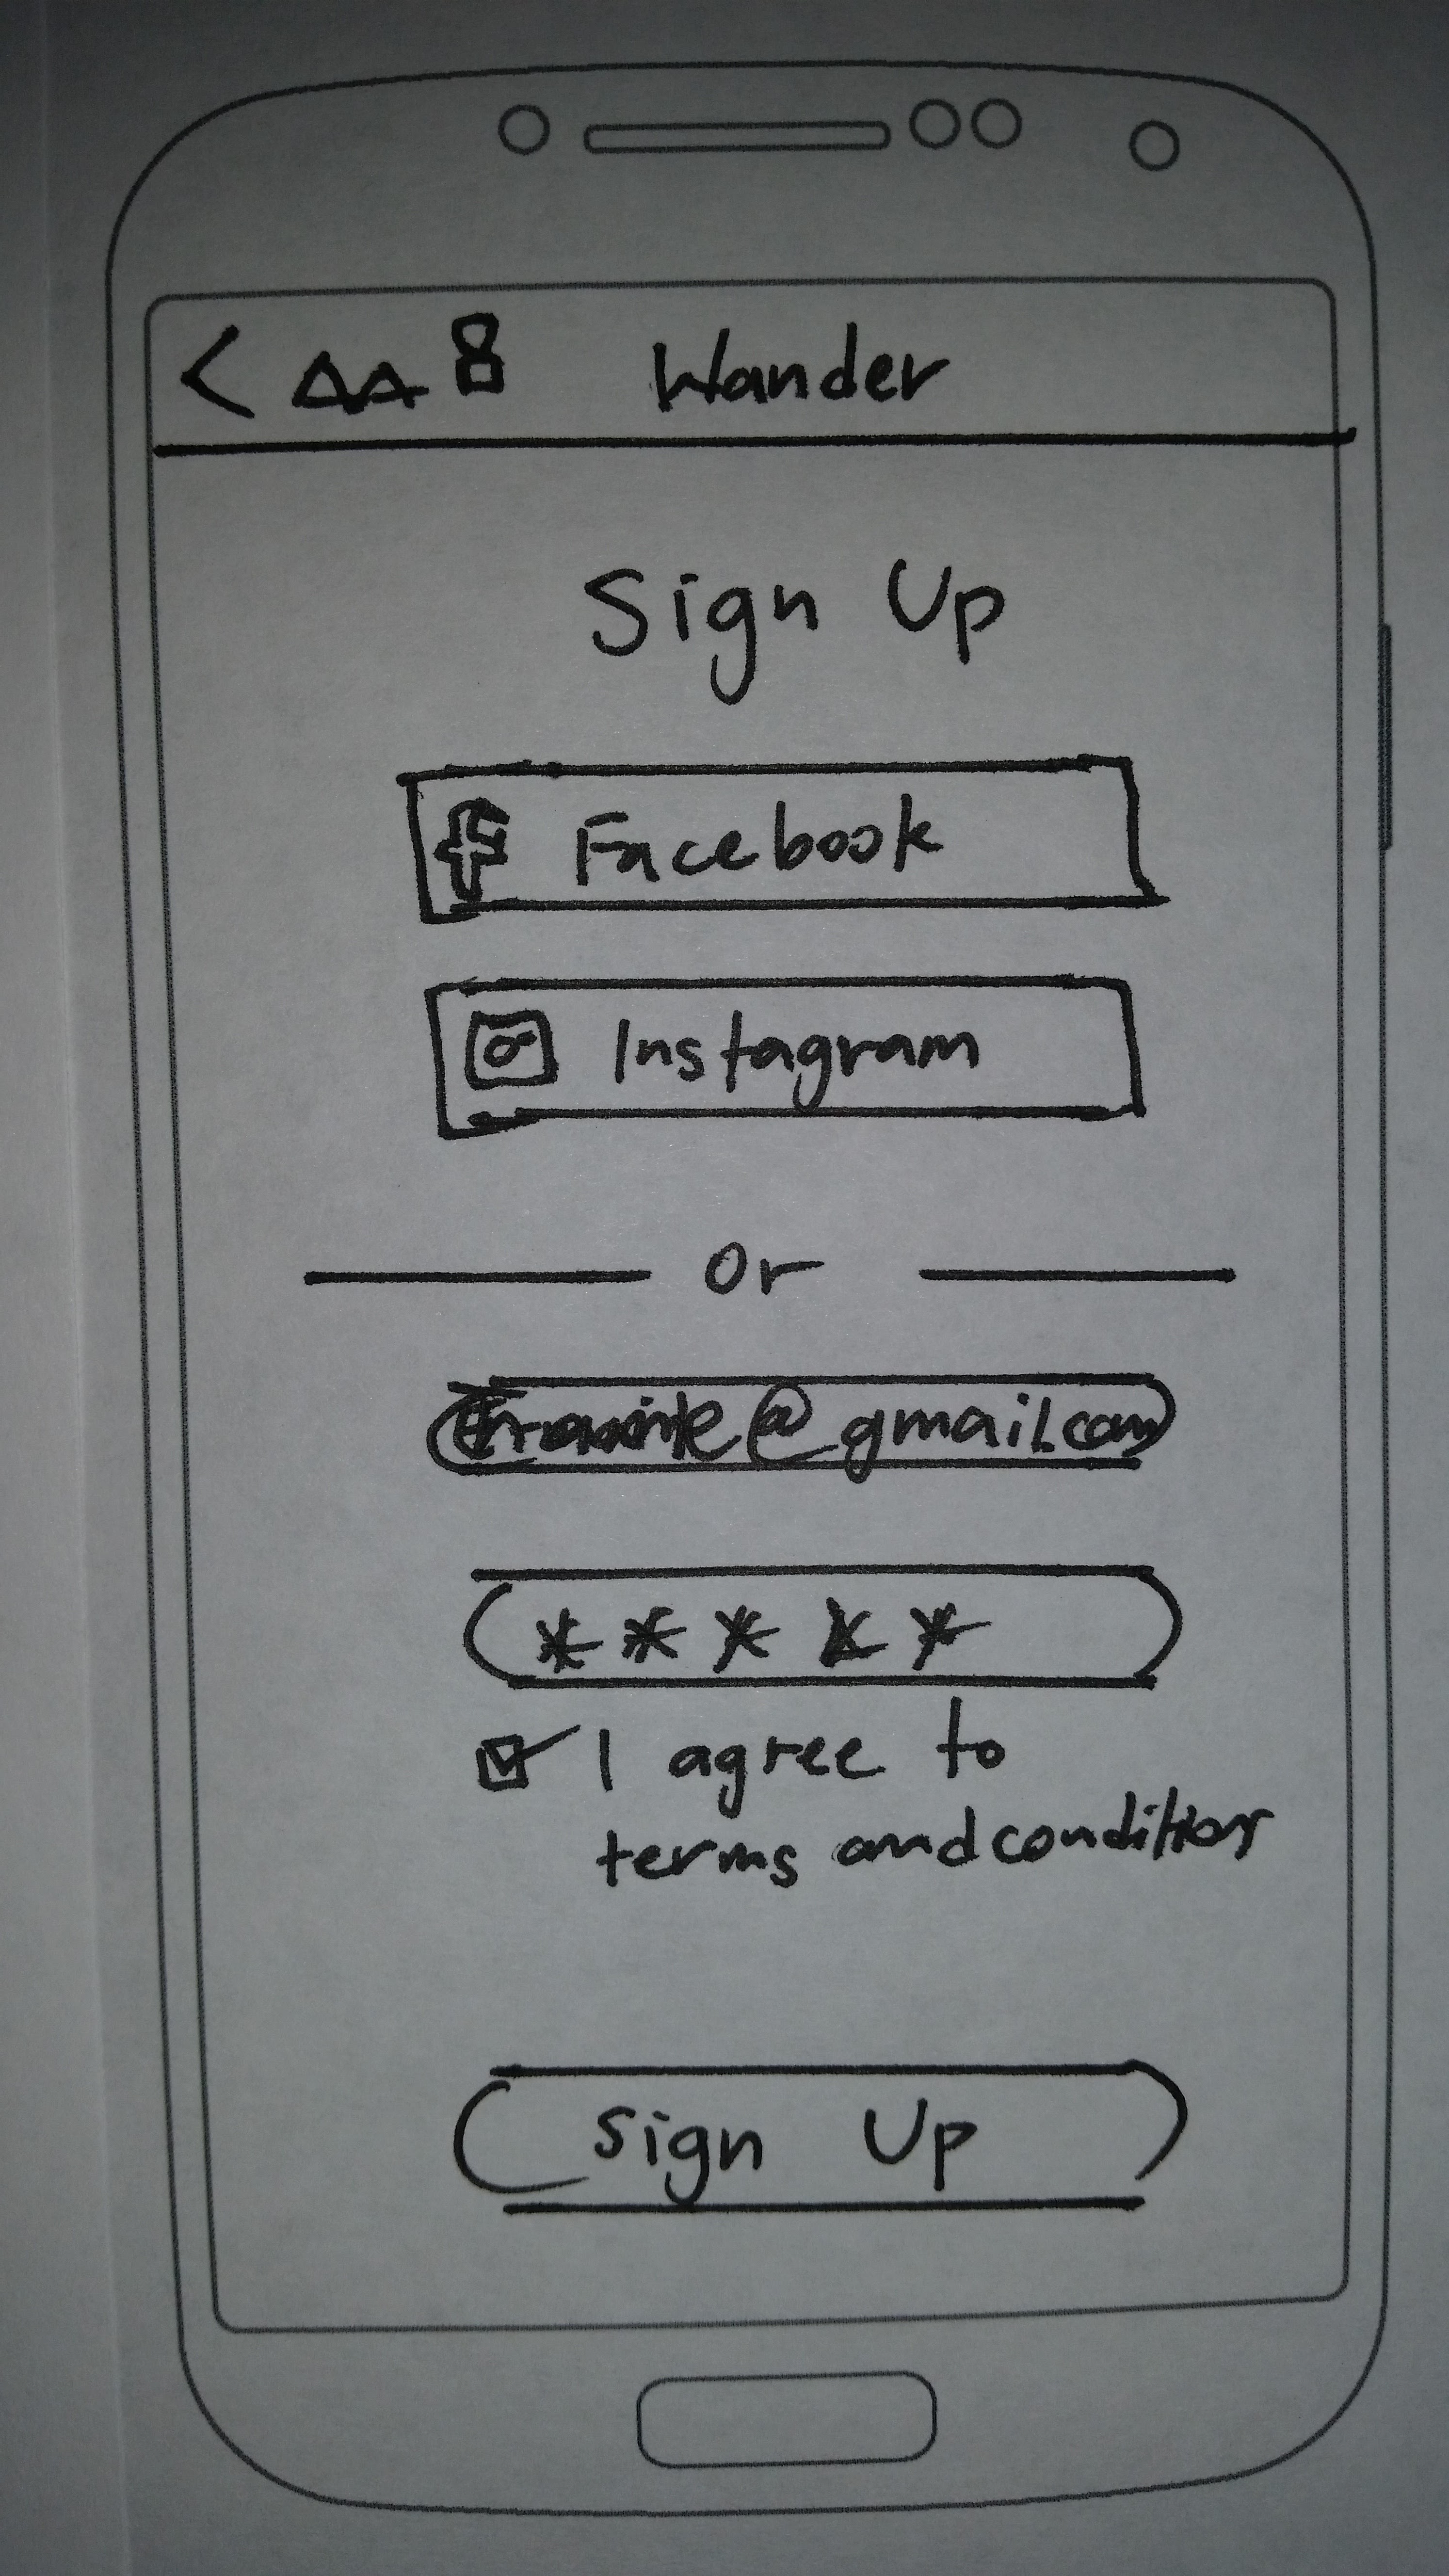 < Wander
Sign Up
Facebook
Instagram
Or
@gmail.com
*****
I agree to
terms and conditions
Sign Up